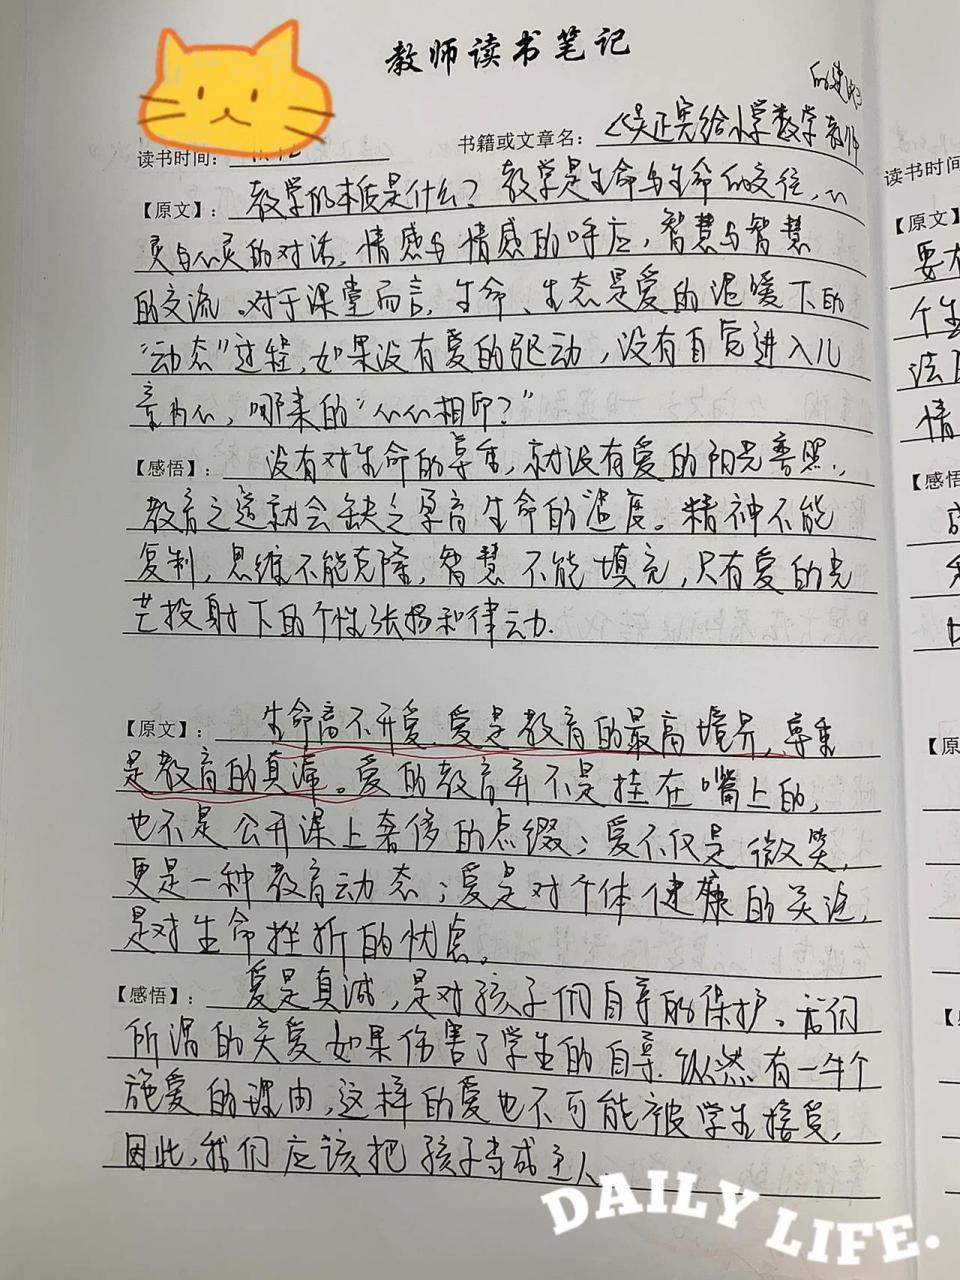 教师读书笔记
的建议》
读书时间：
书籍或文章名：《吴正宪给小学数学教师
【原文】：教学的本质是什么？教学是生命与生命的交往，心
灵与心灵的对话，情感与情感的呼应，智慧与智慧
的交流。对于课堂而言，生命、生态是爱的温暖下的
“动态”过程，如果没有爱的驱动，没有自觉进入儿
童内心，哪来的“心心相印？”
【感悟】：没有对生命的尊重，就没有爱的阳光普照，
教育之道就会缺乏孕育生命的温度。精神不能
复制，思维不能克隆，智慧不能填充，只有爱的光
芒投射下的个性张扬和律动.
【原文】：生命离不开爱，爱是教育的最高境界，尊重
是教育的真谛。爱的教育并不是挂在嘴上的，
也不是公开课上奢侈的点缀；爱不仅是微笑，
更是一种教育动态；爱是对个体健康的关注，
是对生命挫折的忧虑。
【感悟】：爱是真诚，是对孩子们自尊的保护。我们
所谓的关爱如果伤害了学生的自尊.纵然有一千个
施爱的理由，这样的爱也不可能被学生接受，
因此，我们应该把孩子当成主人.
DAILY LIFE.
读书时间
【原文】
要
个生
法
情
【感悟
【原